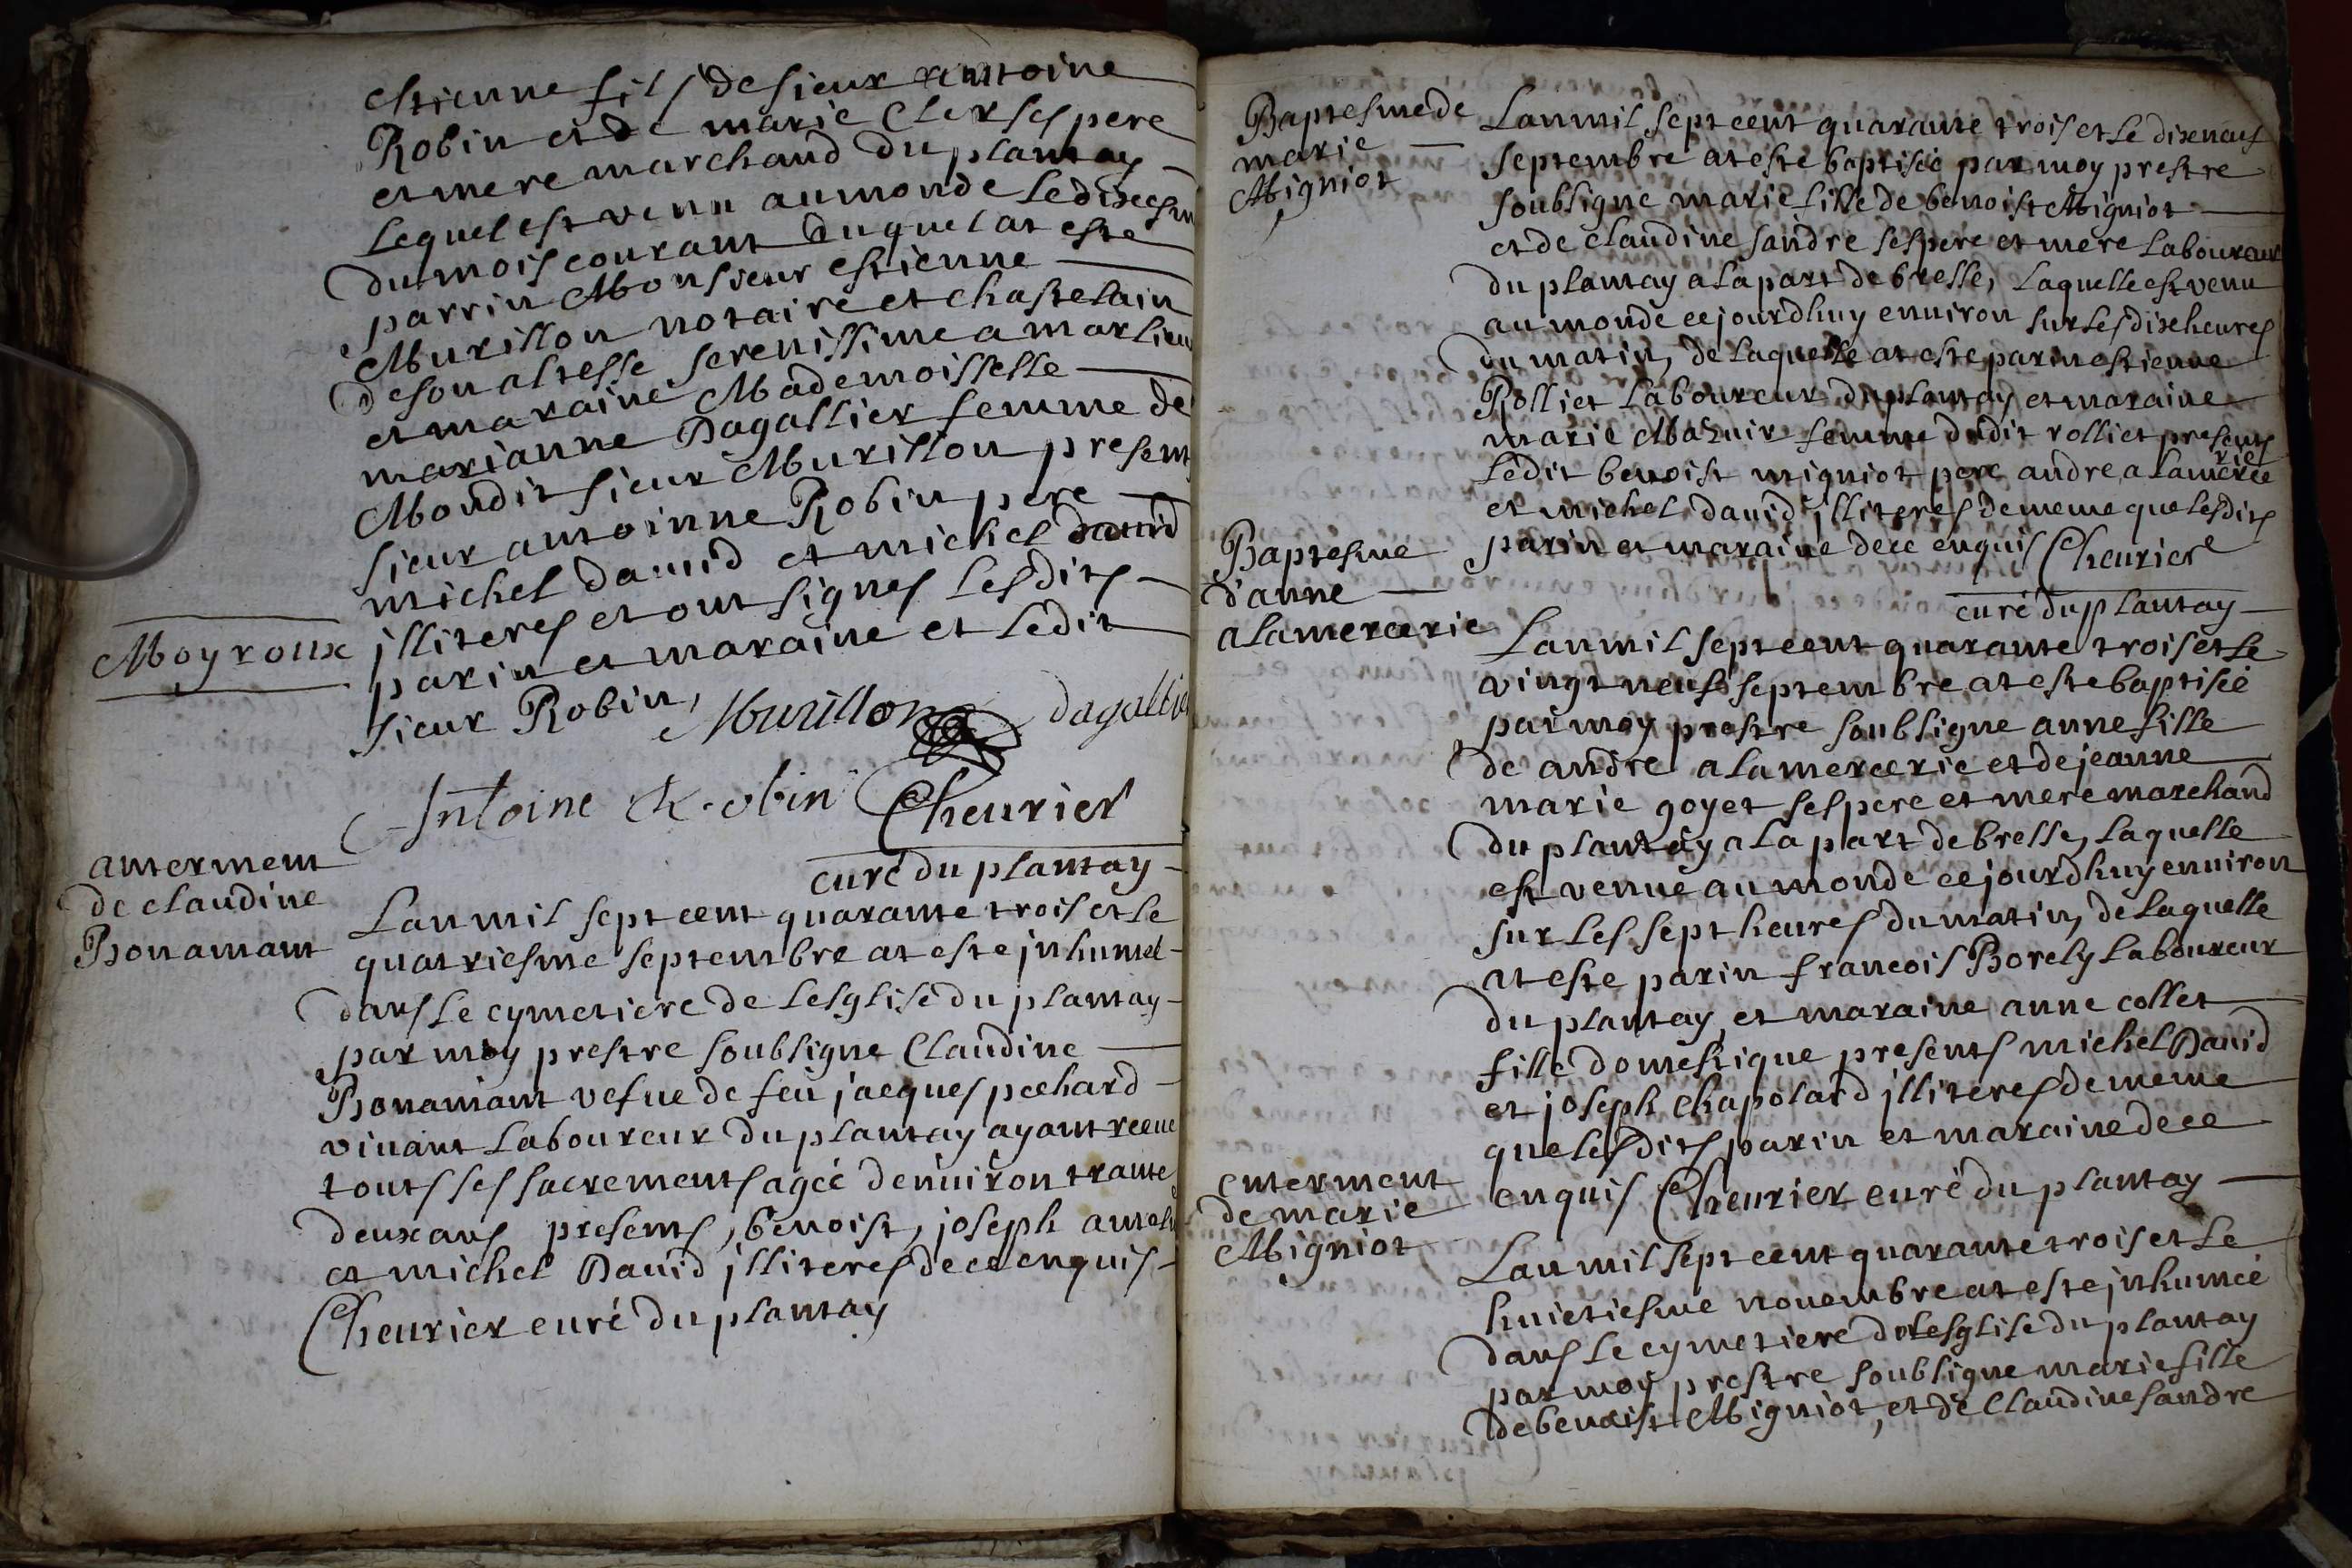 estienne fils de sieur antoine
Robin et de marie Clerc ses pere
et mere marchand du plantay
Lequel est venu au monde le
du mois courant duquel at este
parrin Monsieur estienne
Murillon notaire et chastelain
de son altesse serenissime a marlieu
et maraine Mademoisselle
marianne Dagallier femme de
Moudit sieur Murillon present
sieur antoinne Robin pere
michel dauid et michel dauid
Moyroux
jlliteres et ont signes lesdits
parin et maraine et ledit
sieur Robin,
Murillon dagallier
Antoine Robin Cheurier
curé du plantay
anterment
de claudine
Bonamant
Lan mil sept cent quarante trois et le
quatriesme septembre at este jnhumee
dans le cymetiere de lesglise du plantay
par moy prestre soubsigne Claudine
Bonamant vefue de feu jacques pechard
viuant Laboureur du plantay ayant receu
touts ses sacrements agée denuiron trante
deux ans presents, benoist, joseph
et michel Dauid jlliteres de ce enquis
Cheurier curé du plantay
Baptesme de
marie
Migniot
Lan mil sept cent quarante trois et le dixneuf
septembre at este baptisée par moy prestre
soubsigne marie fille de benoist Migniot
et de claudine sandre ses pere et mere Laboureur
du plantay a la part de bresse, Laquelle est venu
au monde ce jourdhuy enuiron sur les dix heures
du matin, de laquelle at este parin estienne
Rolliet Laboureur du plantay et maraine
marie Mazuir femme dudit rolliet presents
ledit benoist migniot pere andre a la mercerie
et michel dauid jlliteres de meme que lesdits
parin et maraine de ce enquis Cheurier
curé du plantay
Baptesme
d'anne
a la mercerie
Lan mil sept cent quarante trois et le
vingt neuf septembre at este baptisée
par moy prestre soubsigne anne fille
de andre a la mercerie et de jeanne
marie goyet ses pere et mere marchand
du plantay a la part de bresse, Laquelle
est venue au monde ce jourdhuy enuiron
sur les sept heures du matin, de laquelle
at este parin francois Borely Laboureur
du plantay, et maraine anne collet
fille domestique presents michel Dauid
et joseph chapolard jlliteres de meme
que lesdits parin et maraine de ce
enquis Cheurier curé du plantay
enterment
de marie
Migniot
Lan mil sept cent quarante trois et le
huictiesme nouembre at este jnhumée
dans le cymetiere de lesglise du plantay
par moy prestre soubsigne marie fille
de benoist Migniot, et de Claudine sandre